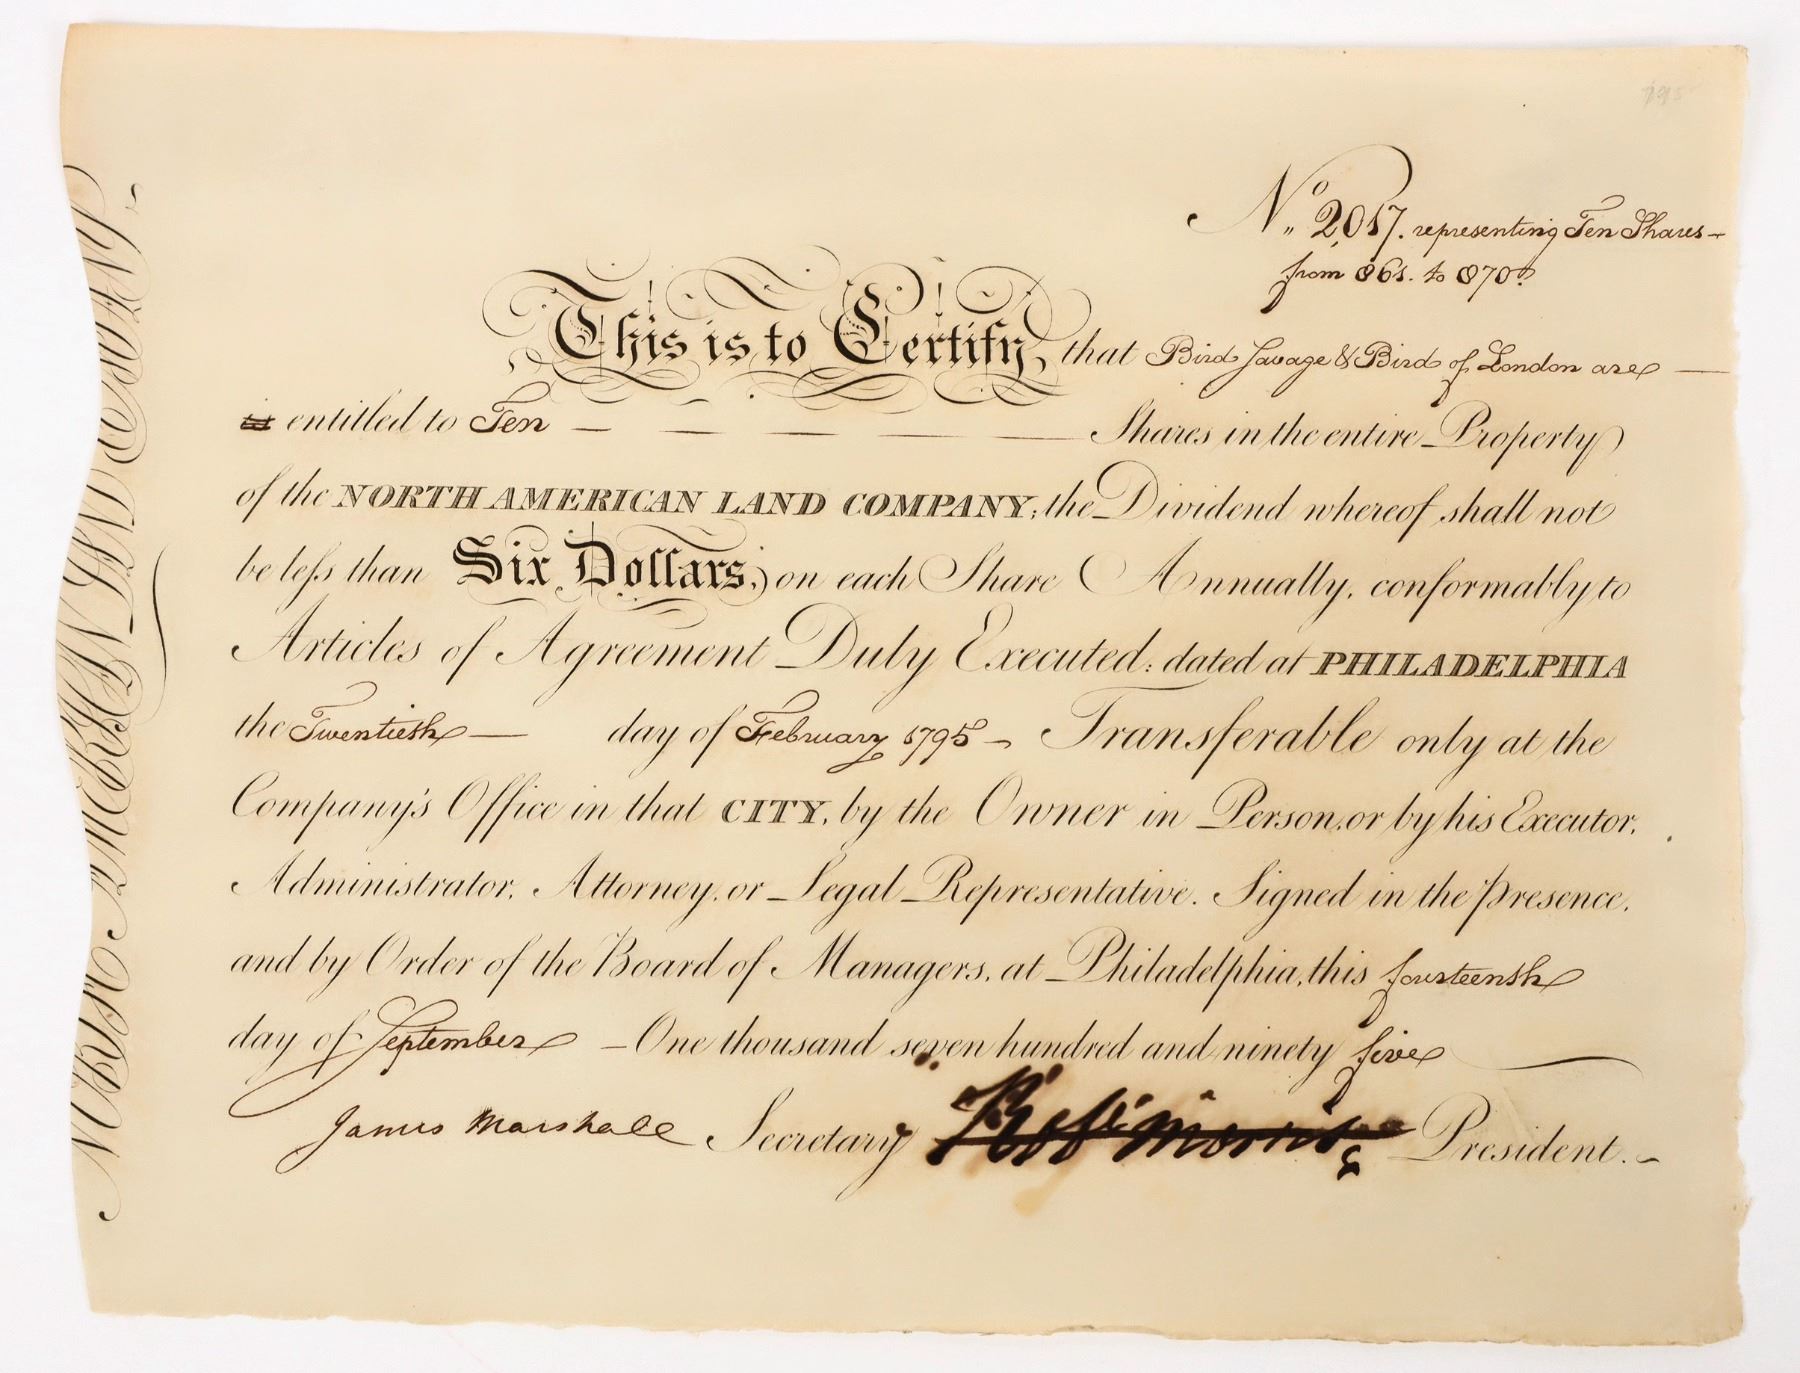 No. 2,017. representing Ten Shares
from 861. to 870.
This is to Certify, that Bird Savage & Bird of London are
is entitled to Ten Shares in the entire Property
of the NORTH AMERICAN LAND COMPANY; the Dividend whereof shall not
be leſs than Six Dollars, on each Share Annually, conformably to
Articles of Agreement Duly Executed: dated at PHILADELPHIA
the Twentieth day of February 1795 Transferable only at the
Company's Office in that CITY, by the Owner in Person, or by his Executor,
Administrator, Attorney, or Legal Representative. Signed in the Presence,
and by Order of the Board of Managers, at Philadelphia, this fourteenth
day of September One thousand seven hundred and ninety five
James Marshall Secretary Robt Morris President.
NORTH AMERICAN LAND COMPANY.